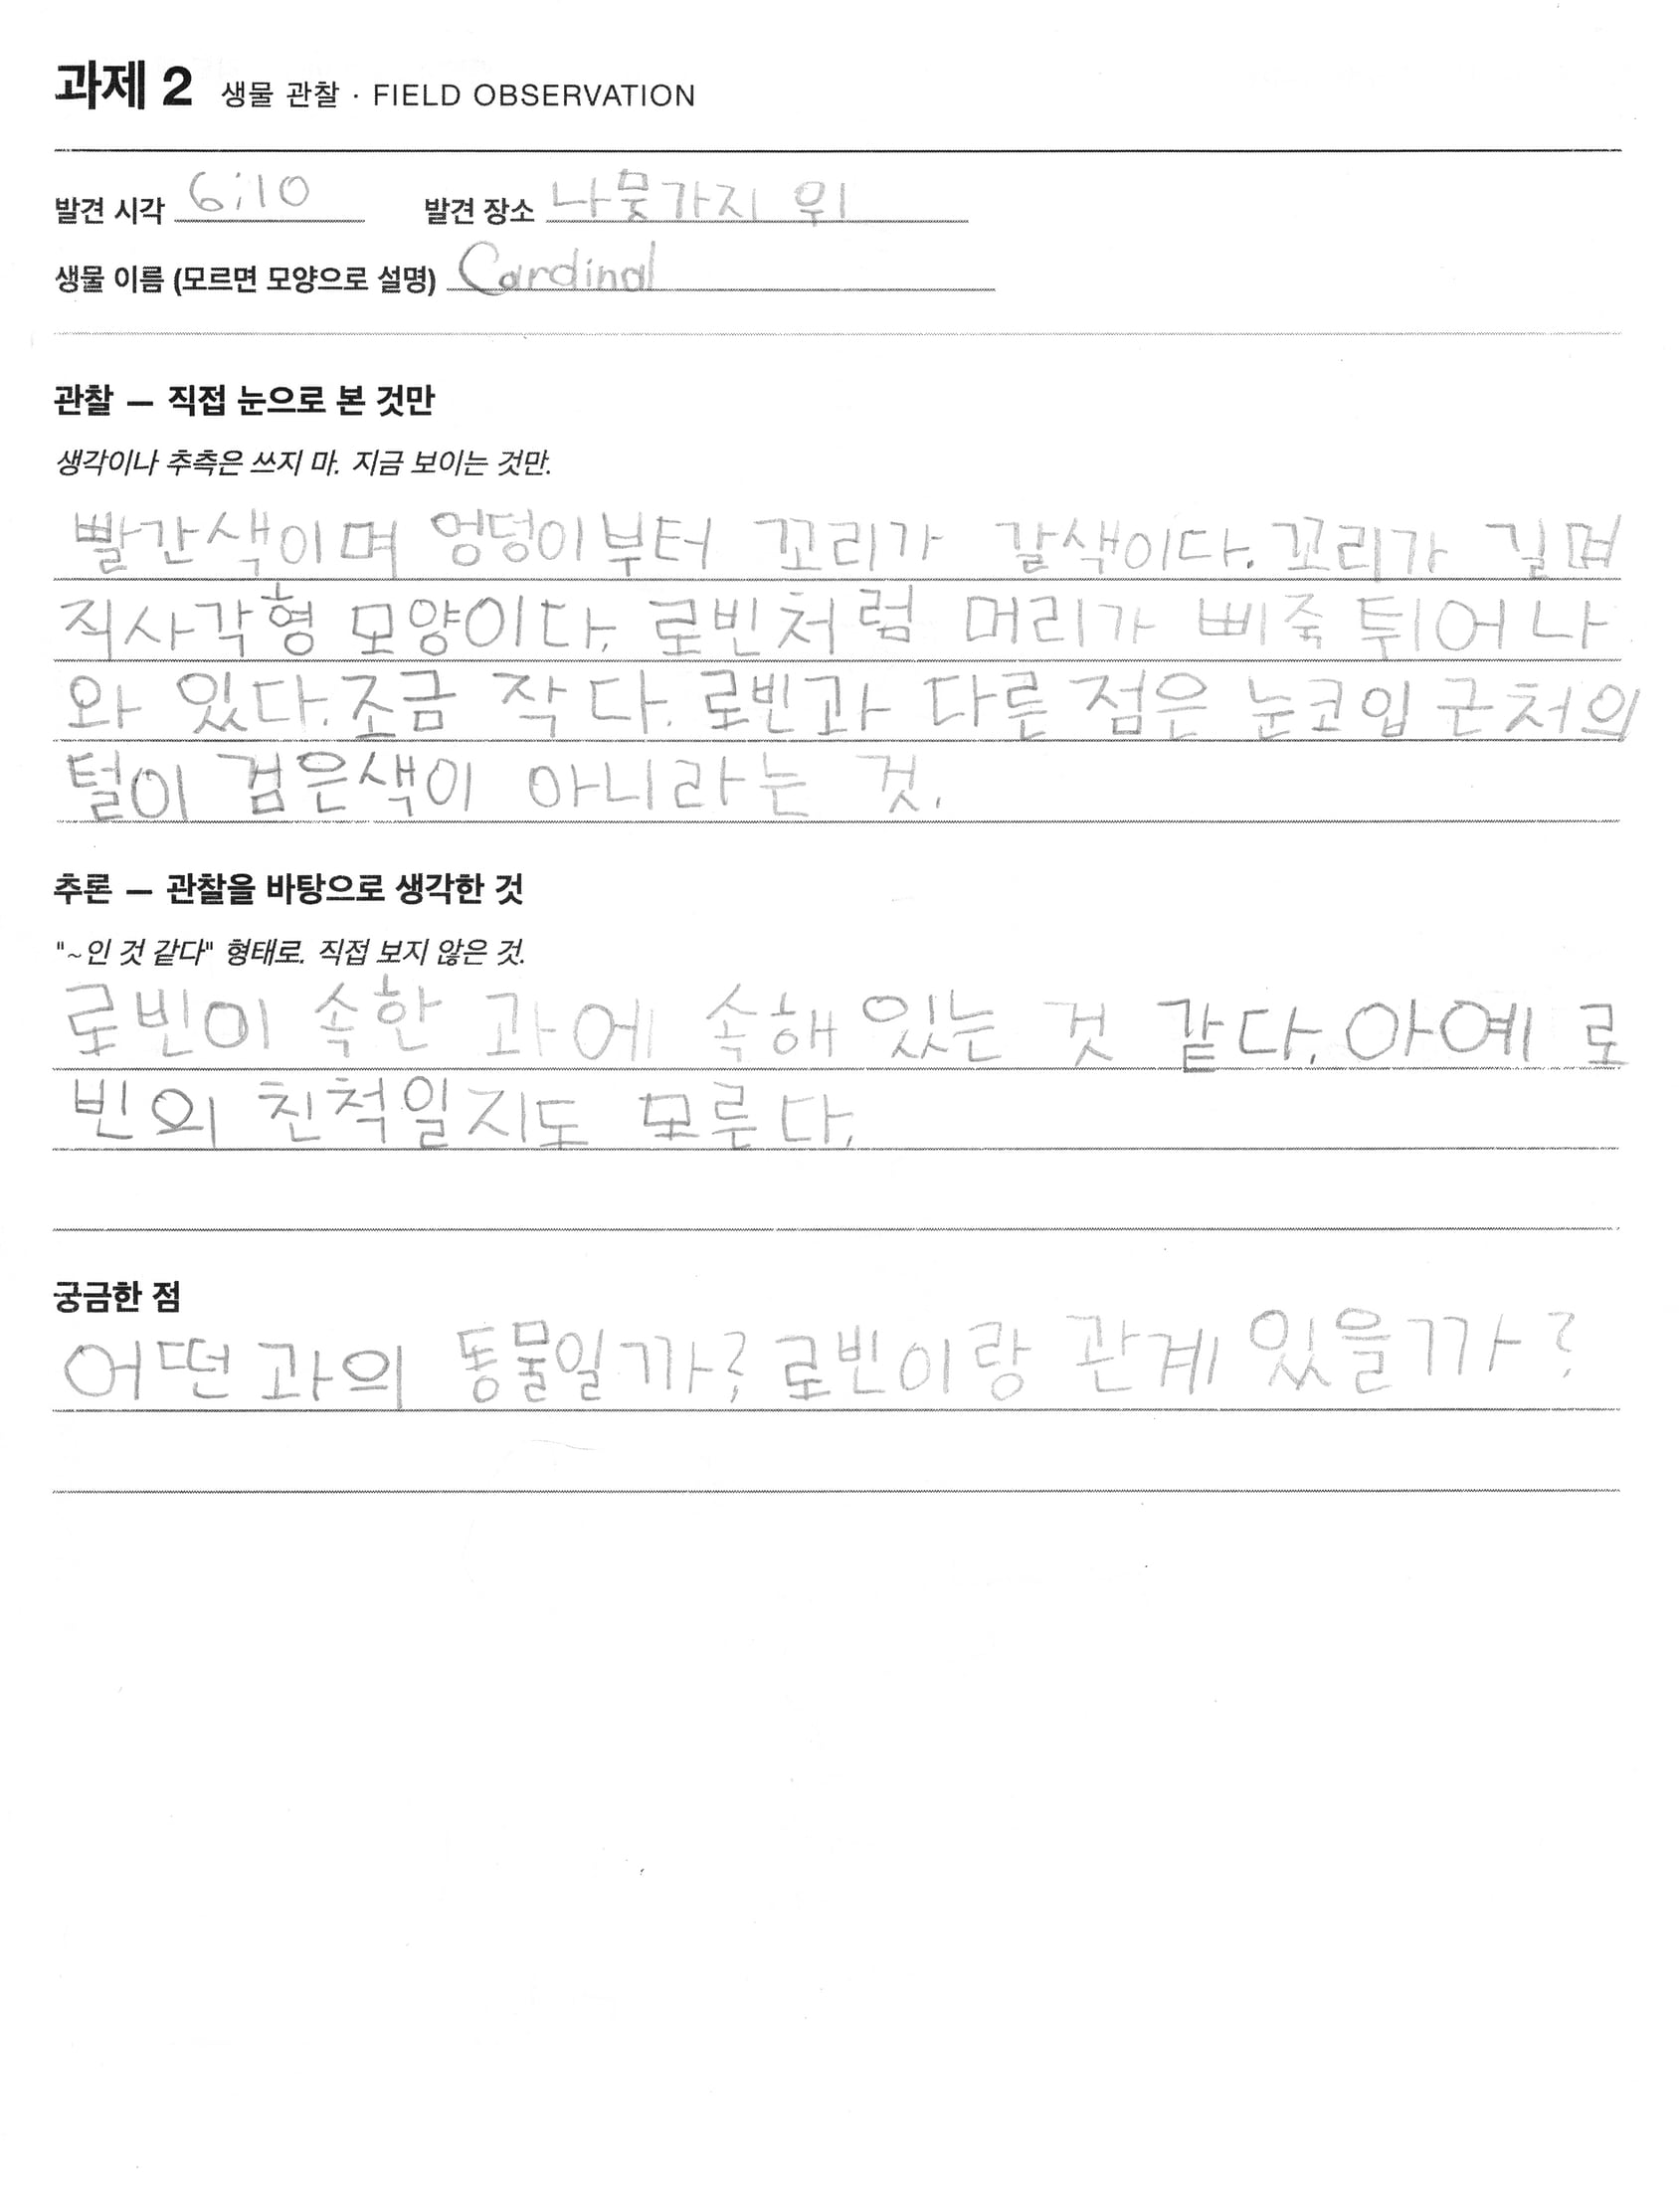 과제 2 생물 관찰 · FIELD OBSERVATION
발견 시각 6:10 발견 장소 나뭇가지 위
생물 이름 (모르면 모양으로 설명) Cardinal
관찰 — 직접 눈으로 본 것만
생각이나 추측은 쓰지 마. 지금 보이는 것만.
빨간색이며 엉덩이부터 꼬리가 갈색이다. 꼬리가 길며
직사각형 모양이다. 로빈처럼 머리가 삐죽 튀어나
와 있다. 조금 작다. 로빈과 다른 점은 눈코입 근처의
털이 검은색이 아니라는 것.
추론 — 관찰을 바탕으로 생각한 것
"~인 것 같다" 형태로. 직접 보지 않은 것.
로빈이 속한 과에 속해 있는 것 같다. 아예 로
빈의 친척일지도 모른다.
궁금한 점
어떤 과의 동물일까? 로빈이랑 관계 있을까?